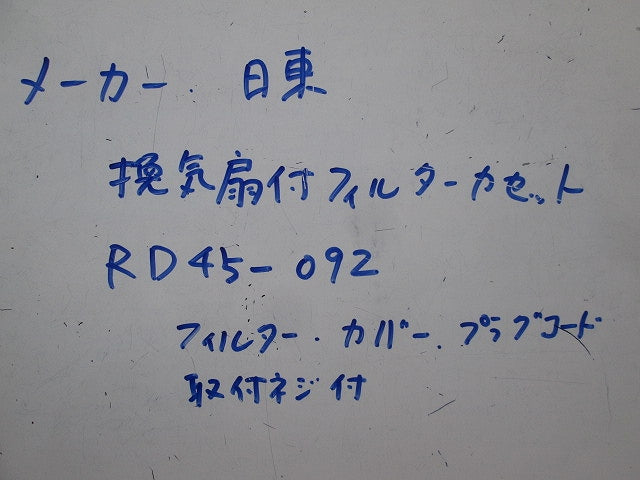 メーカー 日東
換気扇付フィルターカセット
RD45-092
フィルター・カバー・プラグコード
取付ネジ付